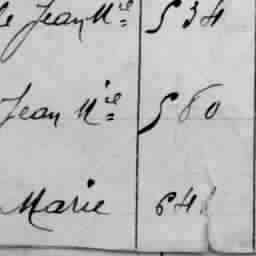 Jean Mie 534
Jean Mie 560
Marie 641